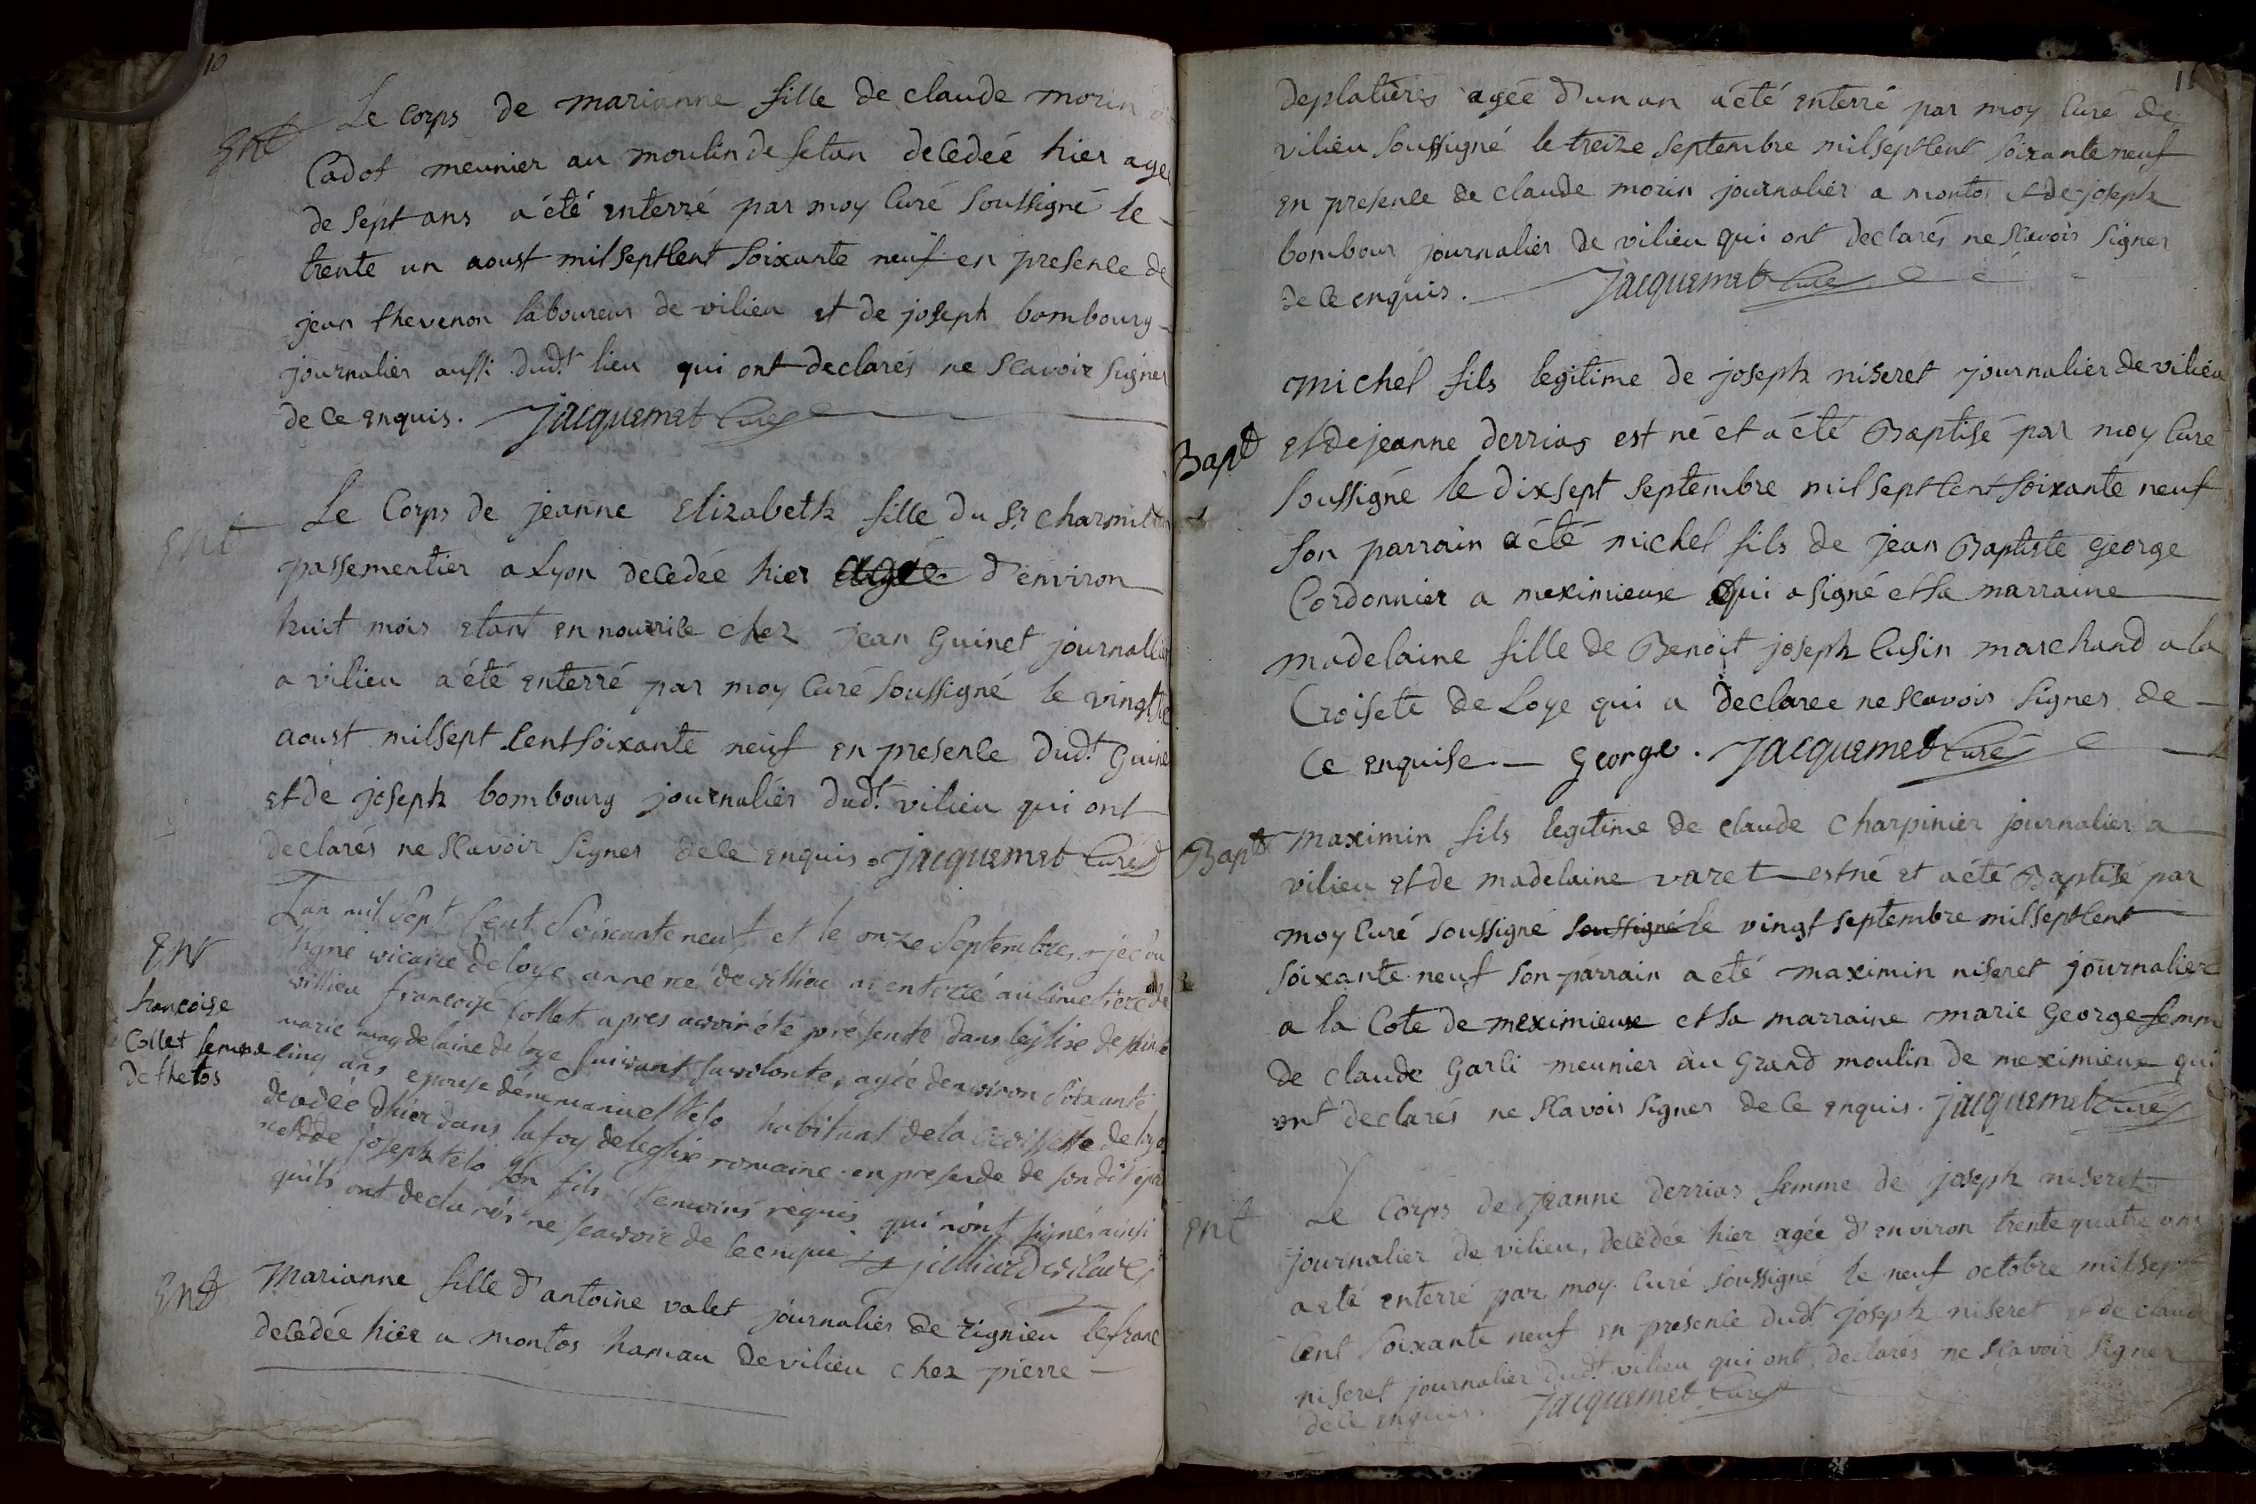 10
Ent
Le corps de marianne fille de claude morin
Cadot meunier au moulin de setan decedeé hier ageé
de sept ans a été enterré par moy curé soussigné le
trente un aoust mil sept cent soixante neuf en presence de
jean thevenon laboureur de vilieu et de joseph bombourg
journalier aussi dud.t lieu qui ont declarés ne scavoir signer
de ce enquis. Jacquemet Curé
Ent
Le Corps de jeanne Elizabeth fille du Sr charmilton
passementier a Lyon decedée hier ageé d'environ
huit mois etant en nourrice chez jean Guinet journallier
a vilieu a été enterré par moy curé soussigné le vingt
aoust mil sept cent soixante neuf en presence dud.t Guinet
et de joseph bombourg journalier dud.t vilieu qui ont
declarés ne scavoir signer de ce enquis. jacquemet curé
Ent
francoise
Collet femme
de thetos
Lan mil sept cent soisante neuf et le onze septembre, je sou
signé vicaire de loye annexe de villieu ai enterré au cimetiere de
villieu francoise Collet apres avoir été presente dans leglise de sainte
marie magdelaine de loye suivant sa volonte, agée denviron soixante
cinq ans, epouse demmanuel télo habitant de la croissette de loye
decedée dhier dans la foy de leglise romaine en presence de son dit epoux
et de joseph telo son fils temoins requis qui n'ont signés ainsi
quils ont declarés ne scavoir de ce enqui
Ent
Marianne fille d'antoine valet journalier de rignieu le franc
decedée hier a montos hamau de vilieu chez pierre
11
deplatieres ageé d'un an a été enterré par moy curé de
vilieu soussigné le treize septembre mil sept cent soixante neuf
en presence de claude morin journalier a montos et de joseph
bombour journalier de vilieu qui ont declarés ne scavoir signer
de ce enquis. Jacquemet curé
Bapt
Michel fils legitime de joseph niseret journalier de vilieu
et de jeanne derrias est né et a été Baptisé par moy curé
soussigné le dixsept septembre mil sept cent soixante neuf
son parrain a été michel fils de jean Baptiste George
Cordonnier a meximieux qui a signé et sa marraine
madelaine fille de Benoit joseph cusin marchand a la
Croisete de Loye qui a declaree ne scavoir signer de
ce enquise. George. Jacquemet curé
Bapt
Maximin fils legitime de claude Charpinier journalier a
vilieu et de madelaine varet est né et a été Baptisé par
moy curé soussigné soussigné le vingt septembre mil sept cent
soixante neuf son parrain a eté maximin niseret journalier
a la Cote de meximieux et sa marraine marie George femme
de claude Garli meunier au Grand moulin de meximieux qui
ont declarés ne scavoir signer de ce enquis. jacquemet curé
Ent
Le Corps de Jeanne derrias femme de joseph niseret
journalier de vilieu, decedée hier agée d'environ trente quatre ans
a eté enterré par moy curé soussigné le neuf octobre mil sept
cent soixante neuf en presence dud.t joseph niseret et de claude
niseret journalier dud.t vilieu qui ont declarés ne scavoir signer
de ce enquis. Jacquemet Curé